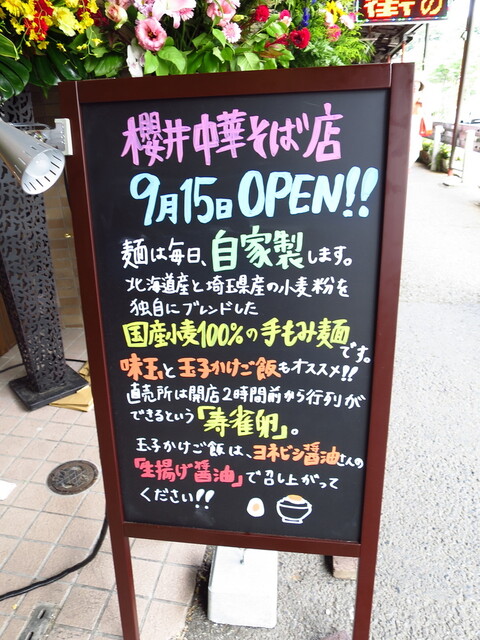 櫻井中華そば店
9月15日 OPEN!!
麺は毎日、自家製します。
北海道産と埼玉県産の小麦粉を
独自にブレンドした
国産小麦100%の手もみ麺です。
味玉と玉子かけご飯もオススメ!!
直売所は開店2時間前から行列が
できるという「寿雀卵」。
玉子かけご飯は、ヨネビシ醤油さんの
「生揚げ醤油」で召し上がって
ください!!